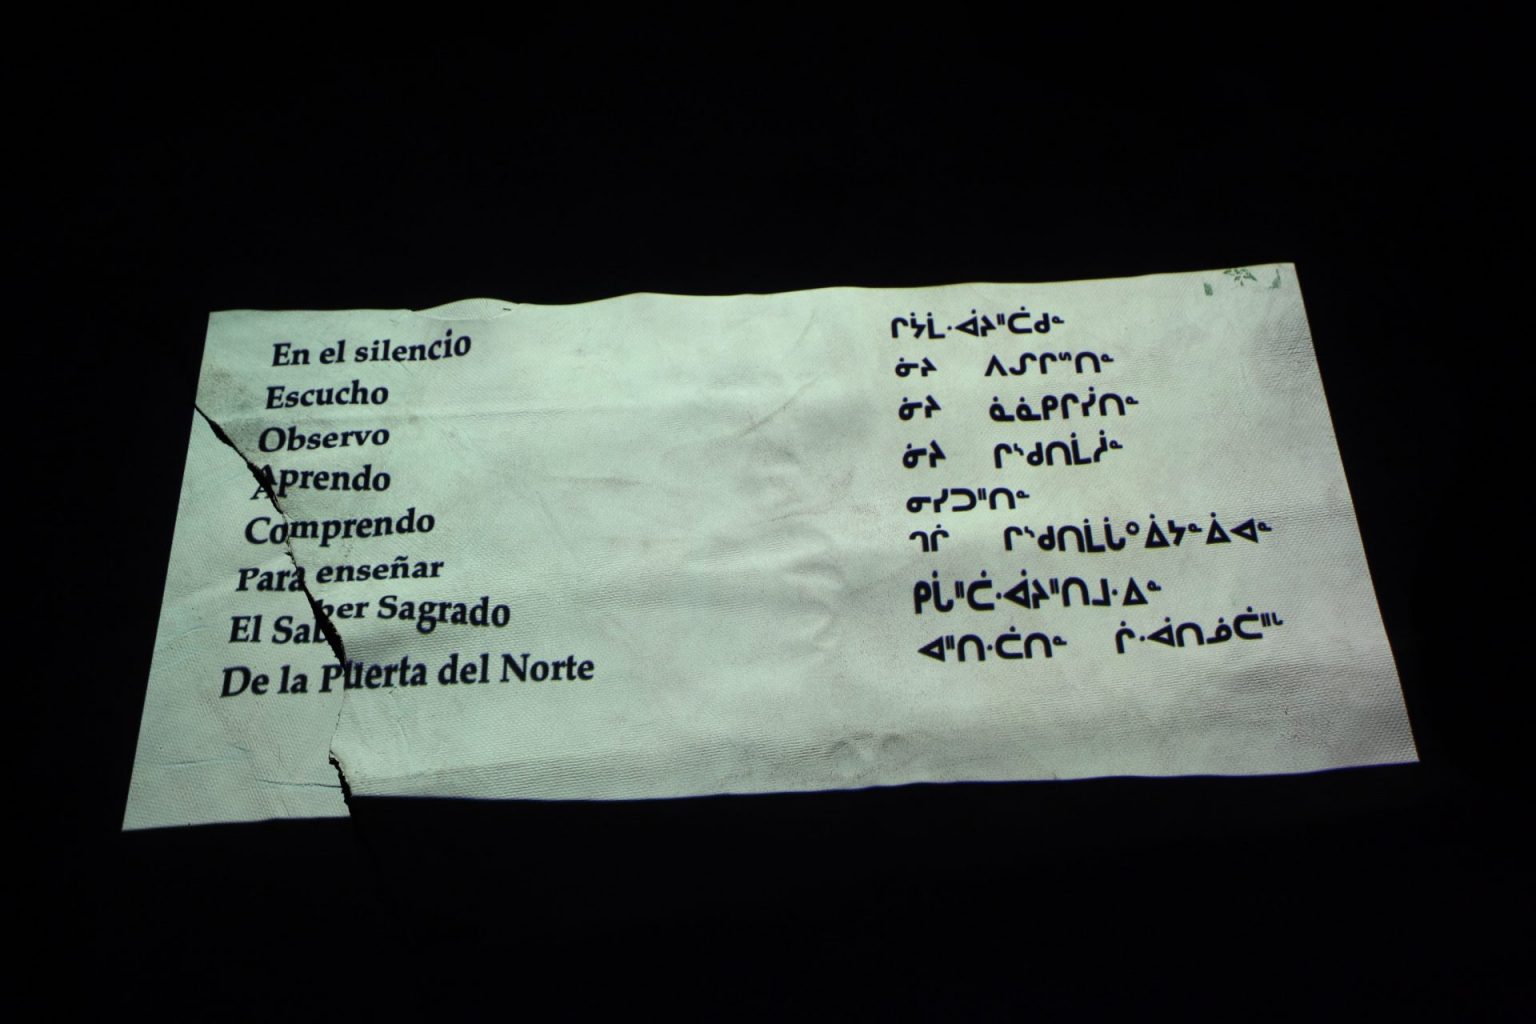 En el silencio
Escucho
Observo
Aprendo
Comprendo
Para enseñar
El Saber Sagrado
De la Puerta del Norte
ᒋᔮᒫᐧᐋᔨᐦᑖᑯᓐ
ᓃᔨ ᐱᓯᒋᔥᑎᓐ
ᓃᔨ ᓈᓈᑭᒋᓰᑎᓐ
ᓃᔨ ᒋᔅᑯᑎᒫᓲᓐ
ᓂᓯᑐᐦᑎᓐ
ᒉᒌ ᒋᔅᑯᑎᒫᒑᐤᐄᔭᓐᐄᐊᓐ
ᑭᒑᐦᑖᐧᐋᔨᐦᑎᒧᐧᐃᓐ
ᐊᐦᑎᐧᑖᑎᓐ ᒌᐧᐋᑎᓅᑖᐦᒡ